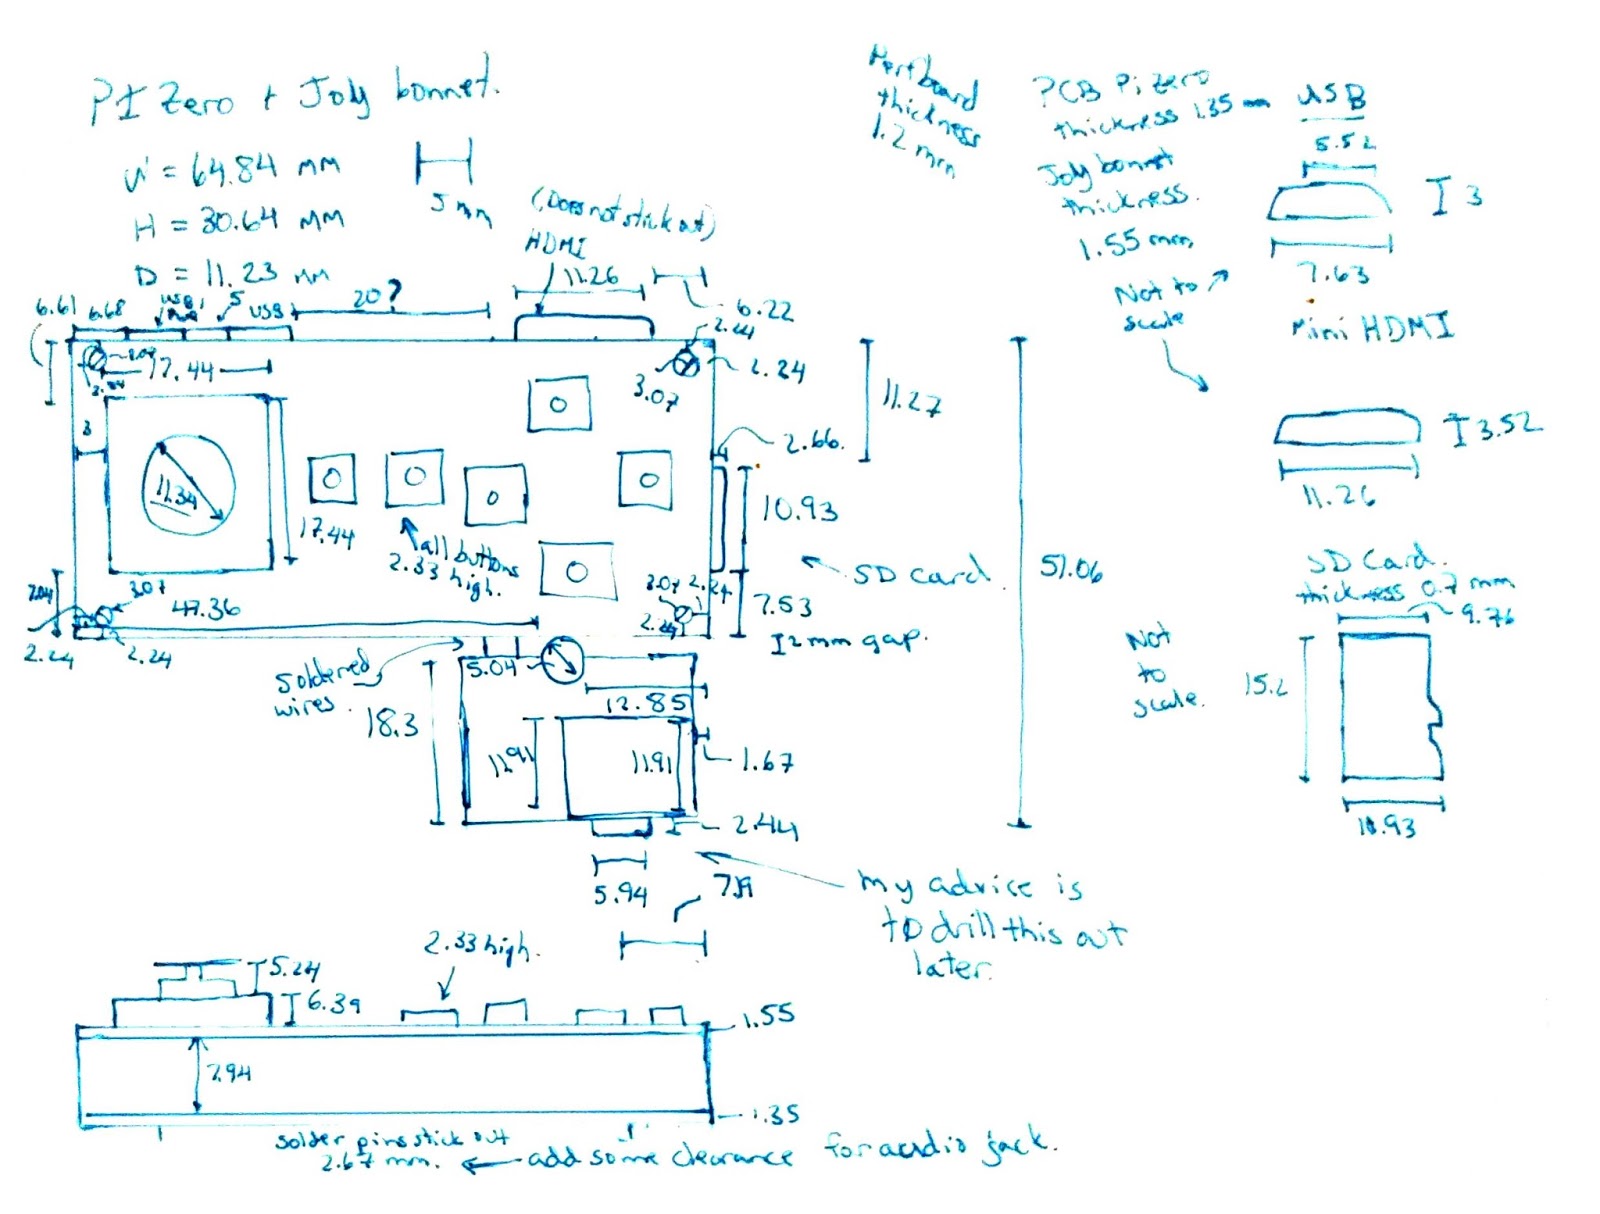 PI Zero + Joly bonnet.
W = 64.84 mm
H = 30.64 mm
D = 11.23 mm
5 mm
(Does not stick out)
HDMI
11.26
6.22
Perfboard
thickness
1.2 mm
PCB Pi Zero
thickness 1.35 mm
Joly bonnet
thickness.
1.55 mm
Not to
scale
USB
5.52
I 3
7.63
Mini HDMI
I 3.52
11.26
6.61
6.68
5
USB
20?
2.24
2.24
3.07
17.44
3
11.34
17.44
all buttons
2.33 high.
11.27
2.66.
10.93
SD Card.
51.06
7.53
I 2mm gap.
3.07
47.36
2.24
2.24
3.07
2.24
2.24
Soldered
wires.
5.04
18.3
12.85
11.91
11.91
1.67
2.44
5.94
My advice is
to drill this out
later.
SD Card.
thickness 0.7 mm
9.76
Not
to
scale.
15.2
10.93
2.33 high.
5.24
6.39
1.55
7.94
1.35
Solder pins stick out
2.67 mm.
add some clearance for audio jack.